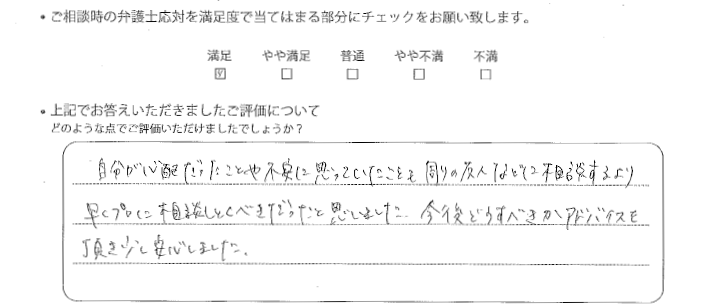 ・ご相談時の弁護士応対を満足度で当てはまる部分にチェックをお願い致します。
満足 やや満足 普通 やや不満 不満
・上記でお答えいただきましたご評価について
どのような点でご評価いただけましたでしょうか?
自分が心配だったことや不安に思っていたことを周りの友人などに相談するより
早くプロに相談しとくべきだったと思いました。今後どうすべきかアドバイスを
頂き少し安心しました。